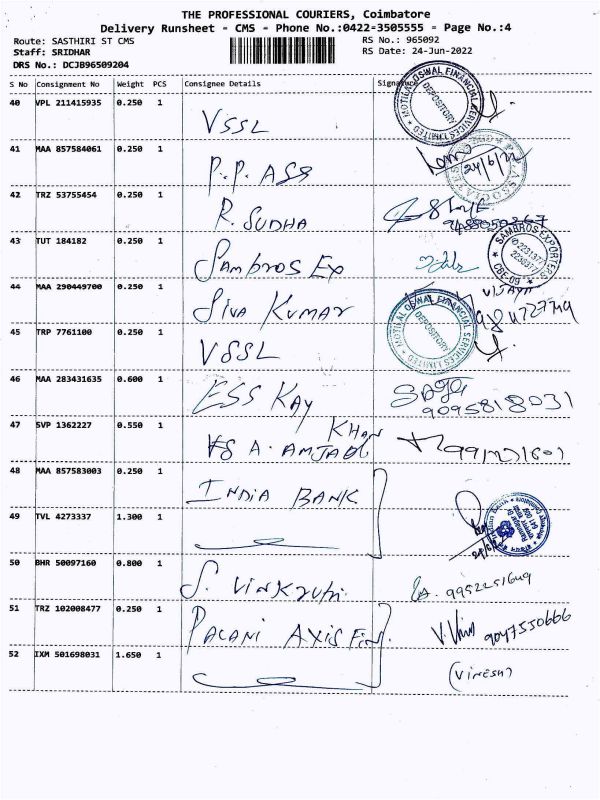 THE PROFESSIONAL COURIERS, Coimbatore
Delivery Runsheet - CMS - Phone No.:0422-3505555 - Page No.:4
Route: SASTHIRI ST CMS RS No.: 965092
Staff: SRIDHAR RS Date: 24-Jun-2022
DRS No.: DCJB96509204
S No Consignment No Weight PCS Consignee Details Signature
40 VPL 211415935 0.250 1 VSSL
MOTILAL OSWAL FINANCIAL SERVICES LIMITED DEPOSITORY
41 MAA 857584061 0.250 1 P.P. ASS 24/6/22
42 TRZ 53755454 0.250 1 R. SUDHA
43 TUT 184182 0.250 1 SAMBROS EX
SAMBROS EXPORTERS CBE-09
44 MAA 290449700 0.250 1 SIVA KUMAR VIJAYA
45 TRP 7761100 0.250 1 VSSL
MOTILAL OSWAL FINANCIAL SERVICES LIMITED DEPOSITORY
46 MAA 283431635 0.600 1 ESS KAY 9095818031
47 SVP 1362227 0.550 1 KHAN
A. AMJAD
48 MAA 857583003 0.250 1 INDIA BANK
49 TVL 4273337 1.300 1
50 BHR 50097160 0.800 1 S.
51 TRZ 102008477 0.250 1 PALANI AXIS FIN. 9047530666
52 IXM 501698031 1.650 1 (VINESH)